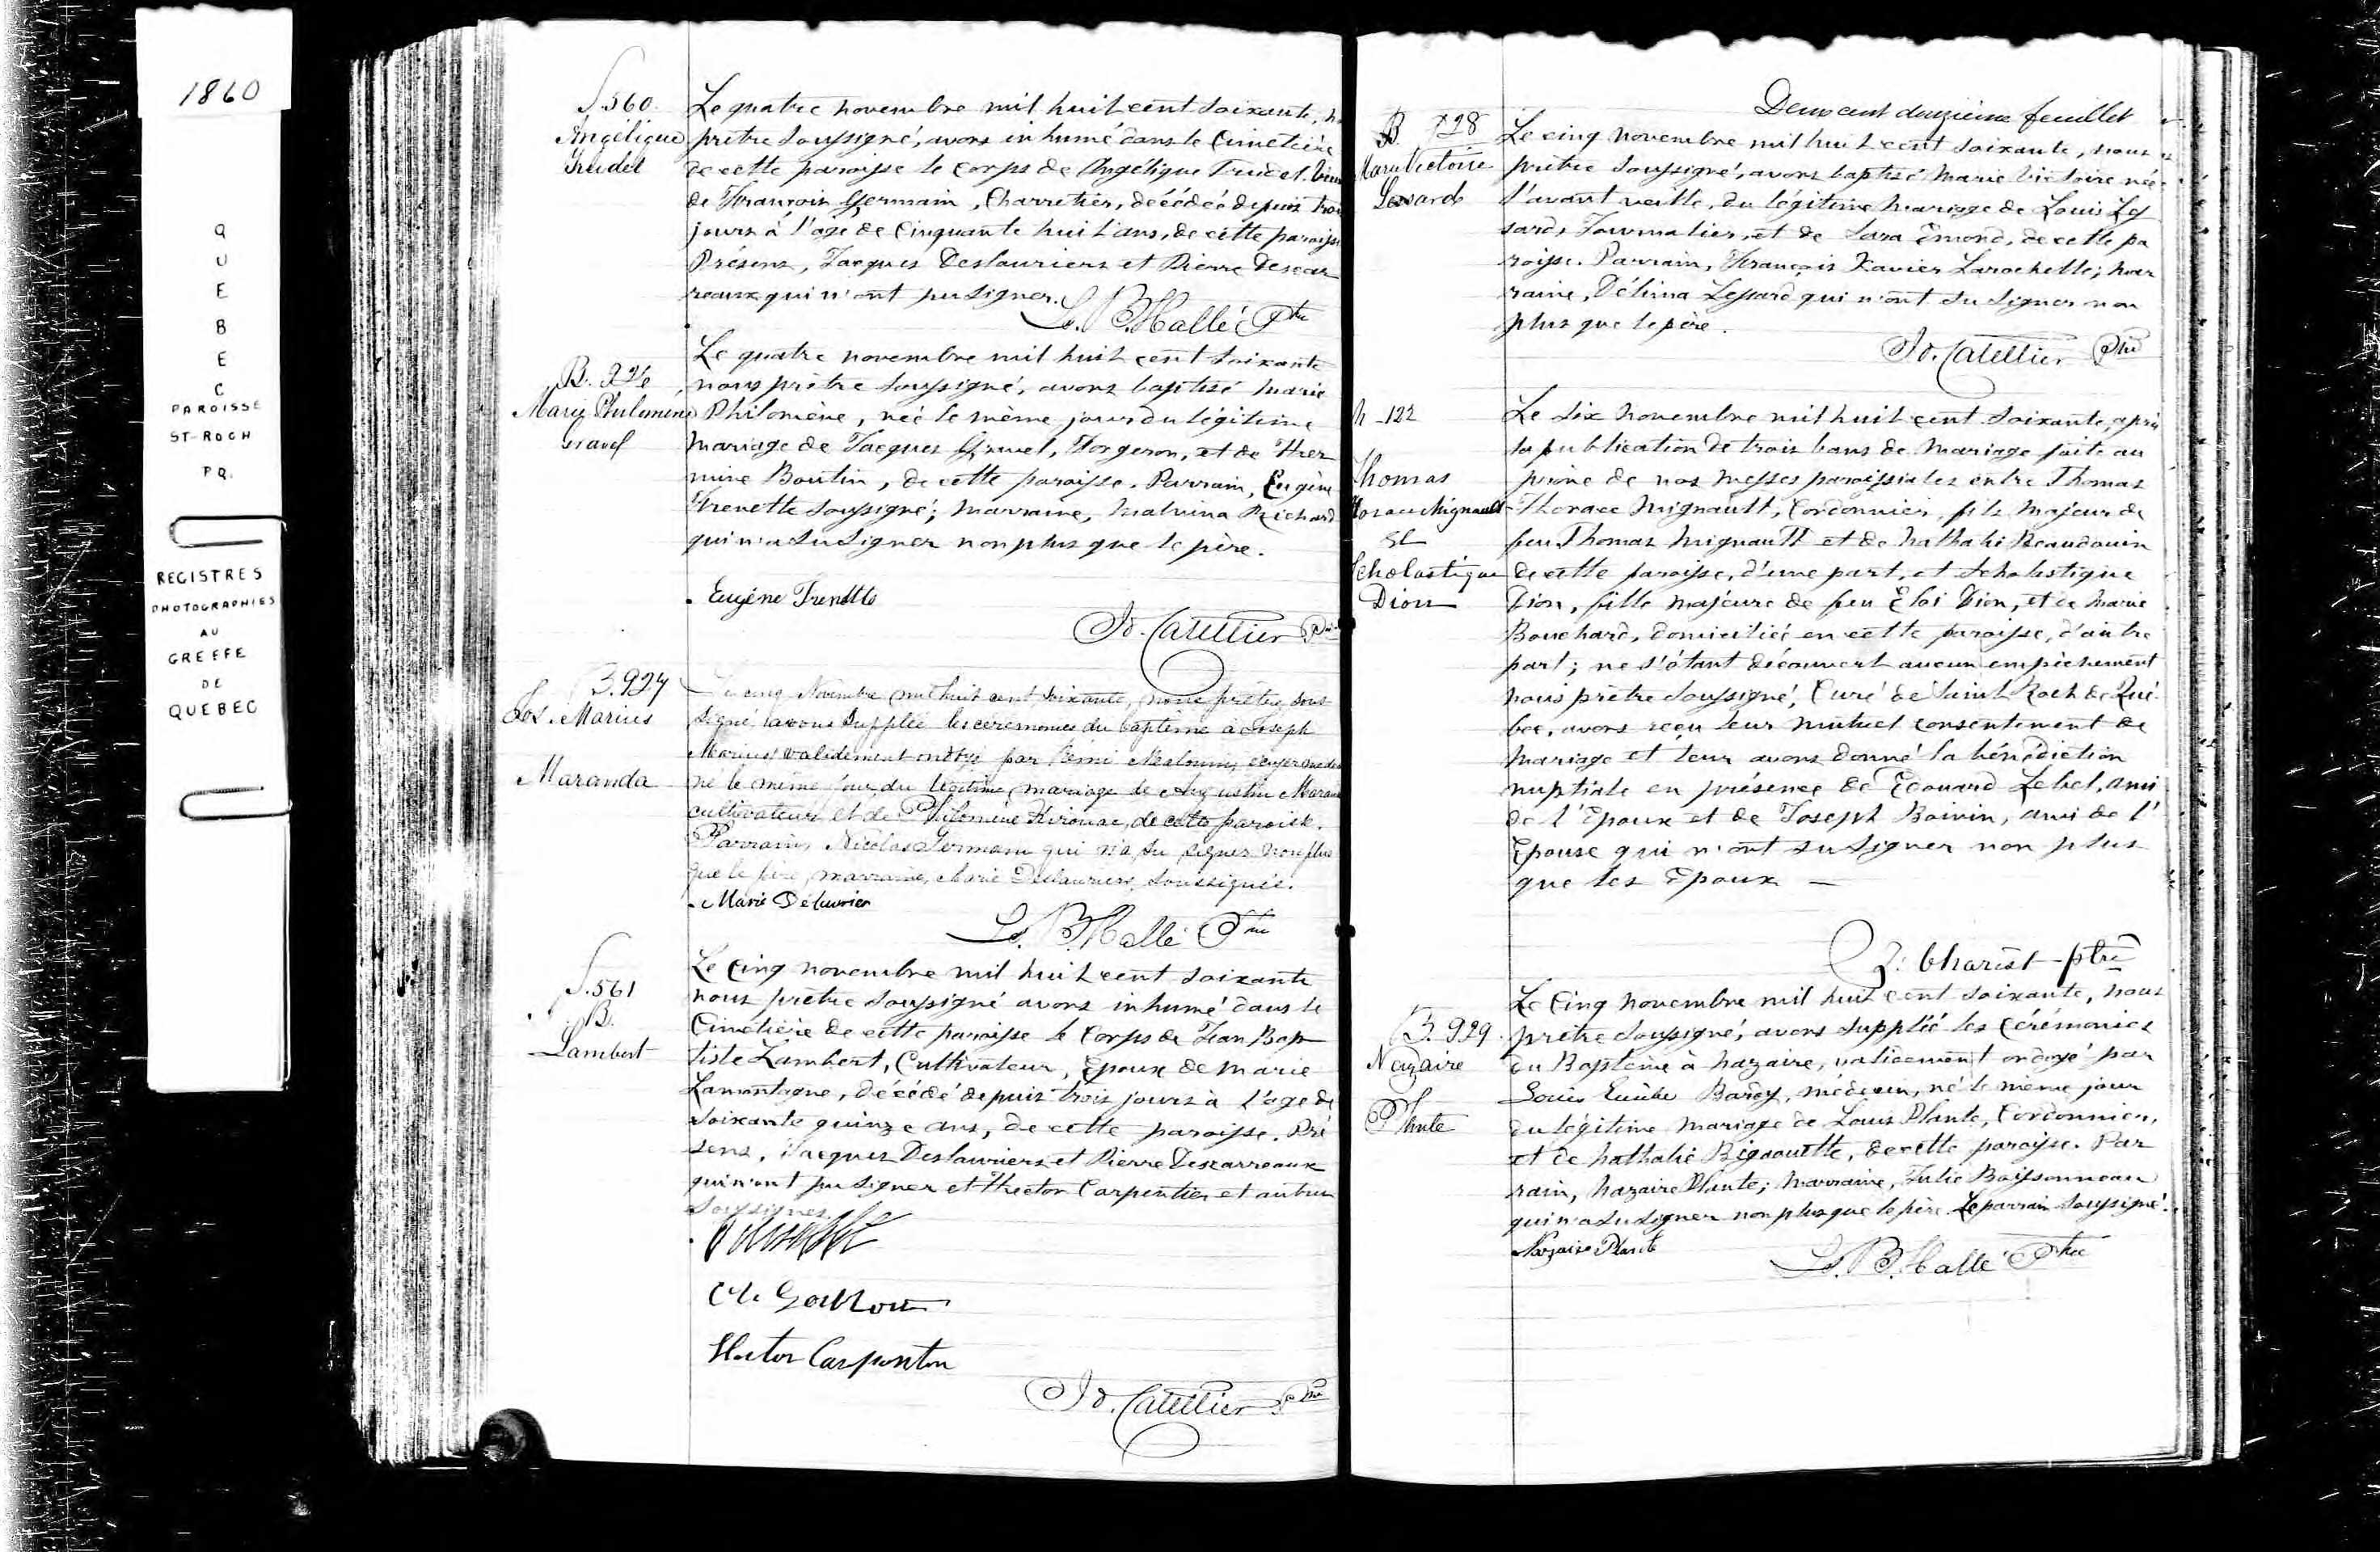 1860
QUEBEC
PAROISSE
ST-ROCH
PQ.
REGISTRES
PHOTOGRAPHIES
AU
GREFFE
DE
QUEBEC
S. 560.
Angélique
Trudel
Le quatre novembre mil huit cent soixante,
prêtre soussigné, avons inhumé dans le Cimetière
de cette paroisse le corps de Angélique Trudel
de François Germain, Charretier, décédée depuis trois
jours à l'age de Cinquante huit ans, de cette paroisse
Présens, Jacques Deslauriers et Pierre Descar
reaux qui n'ont pu signer.
Ls. B. Hallé Ptre
B. 926
Marie Philomène
Gravel
Le quatre novembre mil huit cent soixante
nous prêtre soussigné, avons baptisé Marie
Philomène, née le même jour du légitime
mariage de Jacques Gravel, Forgeron, et de Her
mine Boutin, de cette paroisse. Parrain, Eugène
Frenette soussigné; marraine, Malvina Richard
qui n'a su signer non plus que le père.
Eugène Frenette
Id. Catellier Ptre
B. 927
Jos. Marius
Maranda
Le cinq Novembre mil huit cent soixante, nous prêtre sous
signé, avons supplée les cérémonies du baptême à Joseph
Marius validement ondoyé par Rémi
né le même jour, du légitime mariage de Augustin
cultivateur et de Philomène Kirouac, de cette paroisse.
Parrain, Nicolas Germain qui n'a su signer non plus
que le père, marraine, Marie Deslauriers, soussignée.
Marie Délaurier
Ls. B. Hallé Ptre
S. 561
B.
Lambert
Le Cinq novembre mil huit cent soixante
nous prêtre soussigné avons inhumé dans le
Cimetière de cette paroisse le Corps de Jean Bap
tiste Lambert, Cultivateur, Epoux de Marie
Lamontagne, décédé depuis trois jours à l'age de
soixante quinze ans, de cette paroisse. Pré
sens, Jacques Deslauriers et Pierre Descarreaux
qui n'ont pu signer et Hector Carpentier et autres
soussignés.
Hector Carpentier
Id. Catellier Ptre
Deux cent douzième feuillet
B. 928
Marie Victoire
Lessard
Le cinq novembre mil huit cent soixante, nous
prêtre soussigné, avons baptisé Marie Victoire née
l'avant veille, du légitime mariage de Louis Les
sard, Journalier, et de Sara Emond, de cette pa
roisse. Parrain, François Xavier Larochelle; mar
raine, Délima Lessard qui n'ont su signer non
plus que le père.
Id. Catellier Ptre
M 122
Thomas
Horace Mignault
et
Scholastique
Dion
Le six novembre mil huit cent soixante, après
la publication de trois bans de mariage faite au
prone de nos messes paroissiales entre Thomas
Horace Mignault, Cordonnier, fils majeur de
feu Thomas Mignault et de Nathalie Beaudouin
de cette paroisse, d'une part, et Scholastique
Dion, fille majeure de feu Eloi Dion, et de Marie
Bouchard, domiciliée en cette paroisse, d'autre
part; ne s'étant découvert aucun empêchement
nous prêtre soussigné, Curé de Saint Roch de Qué
bec, avons reçu leur mutuel consentement de
mariage et leur avons donné la bénédiction
nuptiale en présence de Edouard Lebel, ami
de l'Epoux et de Joseph Boivin, ami de l'
Epouse qui n'ont su signer non plus
que les Epoux —
Z. Charest ptre
B. 929
Nazaire
Plante
Le Cinq novembre mil huit cent soixante, nous
prêtre soussigné, avons supplée les Cérémonies
du Baptême à Nazaire, validement ondoyé par
Louis Eusèbe Bardy, médecin, né le même jour
du légitime mariage de Louis Plante, Cordonnier,
et de Nathalie Bigaouette, de cette paroisse. Par
rain, Nazaire Plante; marraine, Julie Boissonneau
qui n'a su signer non plus que le père. Le parrain soussigné.
Nazaire Plante
Ls. B. Hallé Ptre